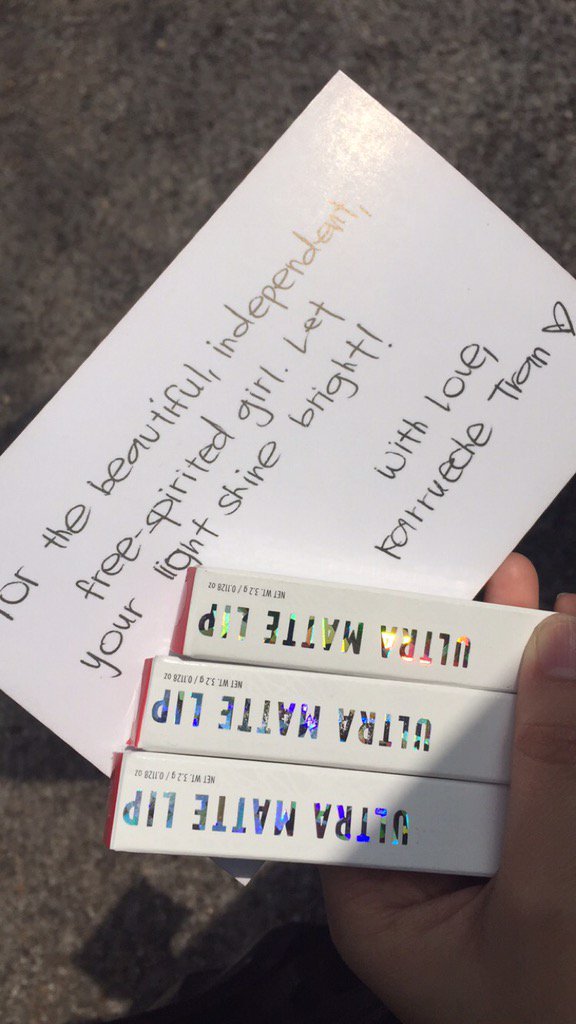 For the beautiful, independent,
free-spirited girl. Let
your light shine bright!
With love,
Karrueche Tran ♡
ULTRA MATTE LIP
NET WT. 3.2 g / 0.1128 oz
ULTRA MATTE LIP
NET WT. 3.2 g / 0.1128 oz
ULTRA MATTE LIP
NET WT. 3.2 g / 0.1128 oz